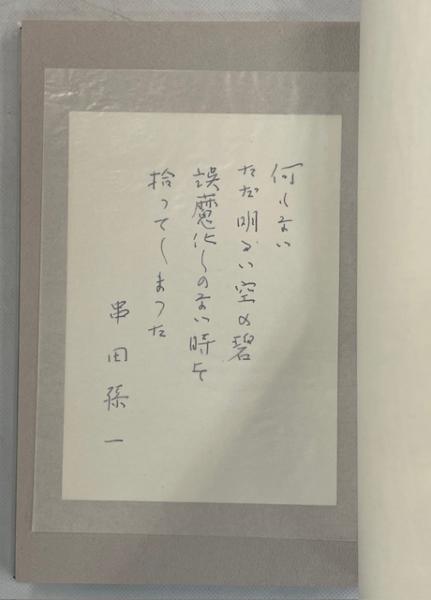 何もない
ただ明るい空の碧
誤魔化しのない時を
拾ってしまった
串田孫一